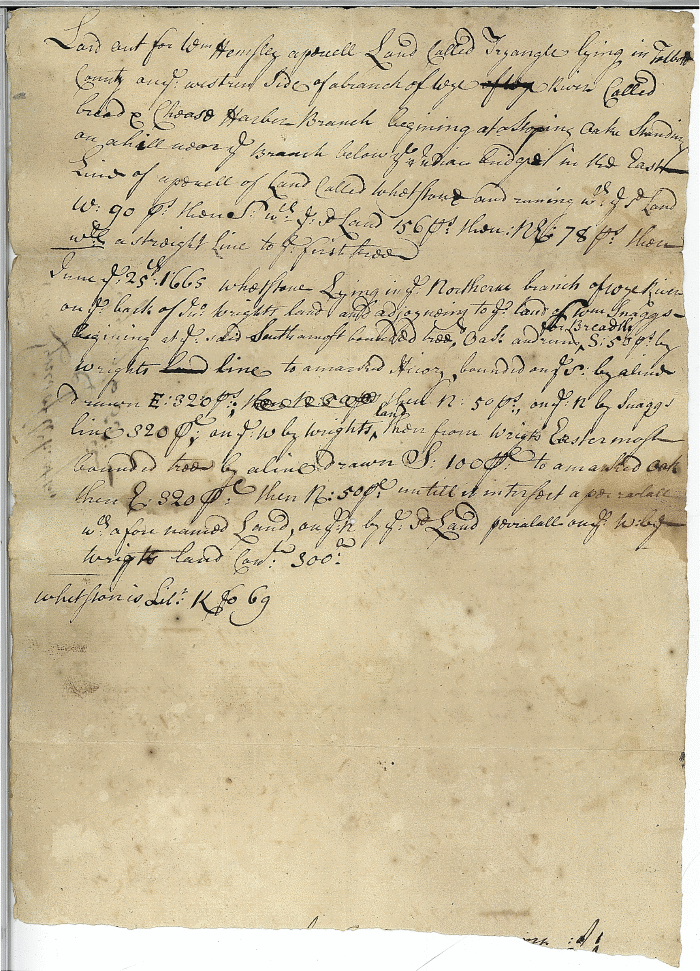 Laid out for Wm Hemsley a parcell Land Called Tryangle lying in Talbott
County on ye. western Side of a branch of Wye River Called
bread & Cheese Harbor Branch begining at a Stoping Oake Standing
on a hill neer ye Branch below ye Indian bridges in the East
Line of a parcell of Land Called Whetstone and runing wth. ye sd Land
W: 90 ps. then S: wth ye: sd Land 156 ps. then: 78 ps. then
wth. a streight Line to ye. first tree
June ye. 25th. 1665 Whetstone Lying in ye Northerne branch of wye River
on ye. back of Jno. Wrights land and adjoyneing to ye. land of Wm Snaggs
begining at ye. said Southermost bounded tree, Oak: and runs for Breadth S: 50 ps. by
Wrights land line to a marked Hicory, bounded on ye S: by a line
drawn E: 320 ps. then N: 50 ps., on ye. N by Snaggs
line 320 ps, on ye. W by Wrights land, then from Wrigts Eastermost
bounded tree by a line drawn S: 100 ps: to a marked oak
then E: 320 ps: then N: 50 ps. untill it intersect a parralall
wth. afore named Land, on ye. N by ye: sd Land parralall on ye. W: by
Wrigts land Cont: 300:
Whetston is Lib: K fo 69